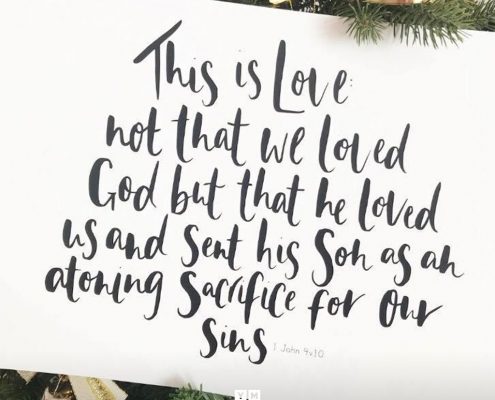 This is Love:
not that we loved
God but that he loved
us and sent his Son as an
atoning Sacrifice for our
Sins
1 John 4v10
Y M